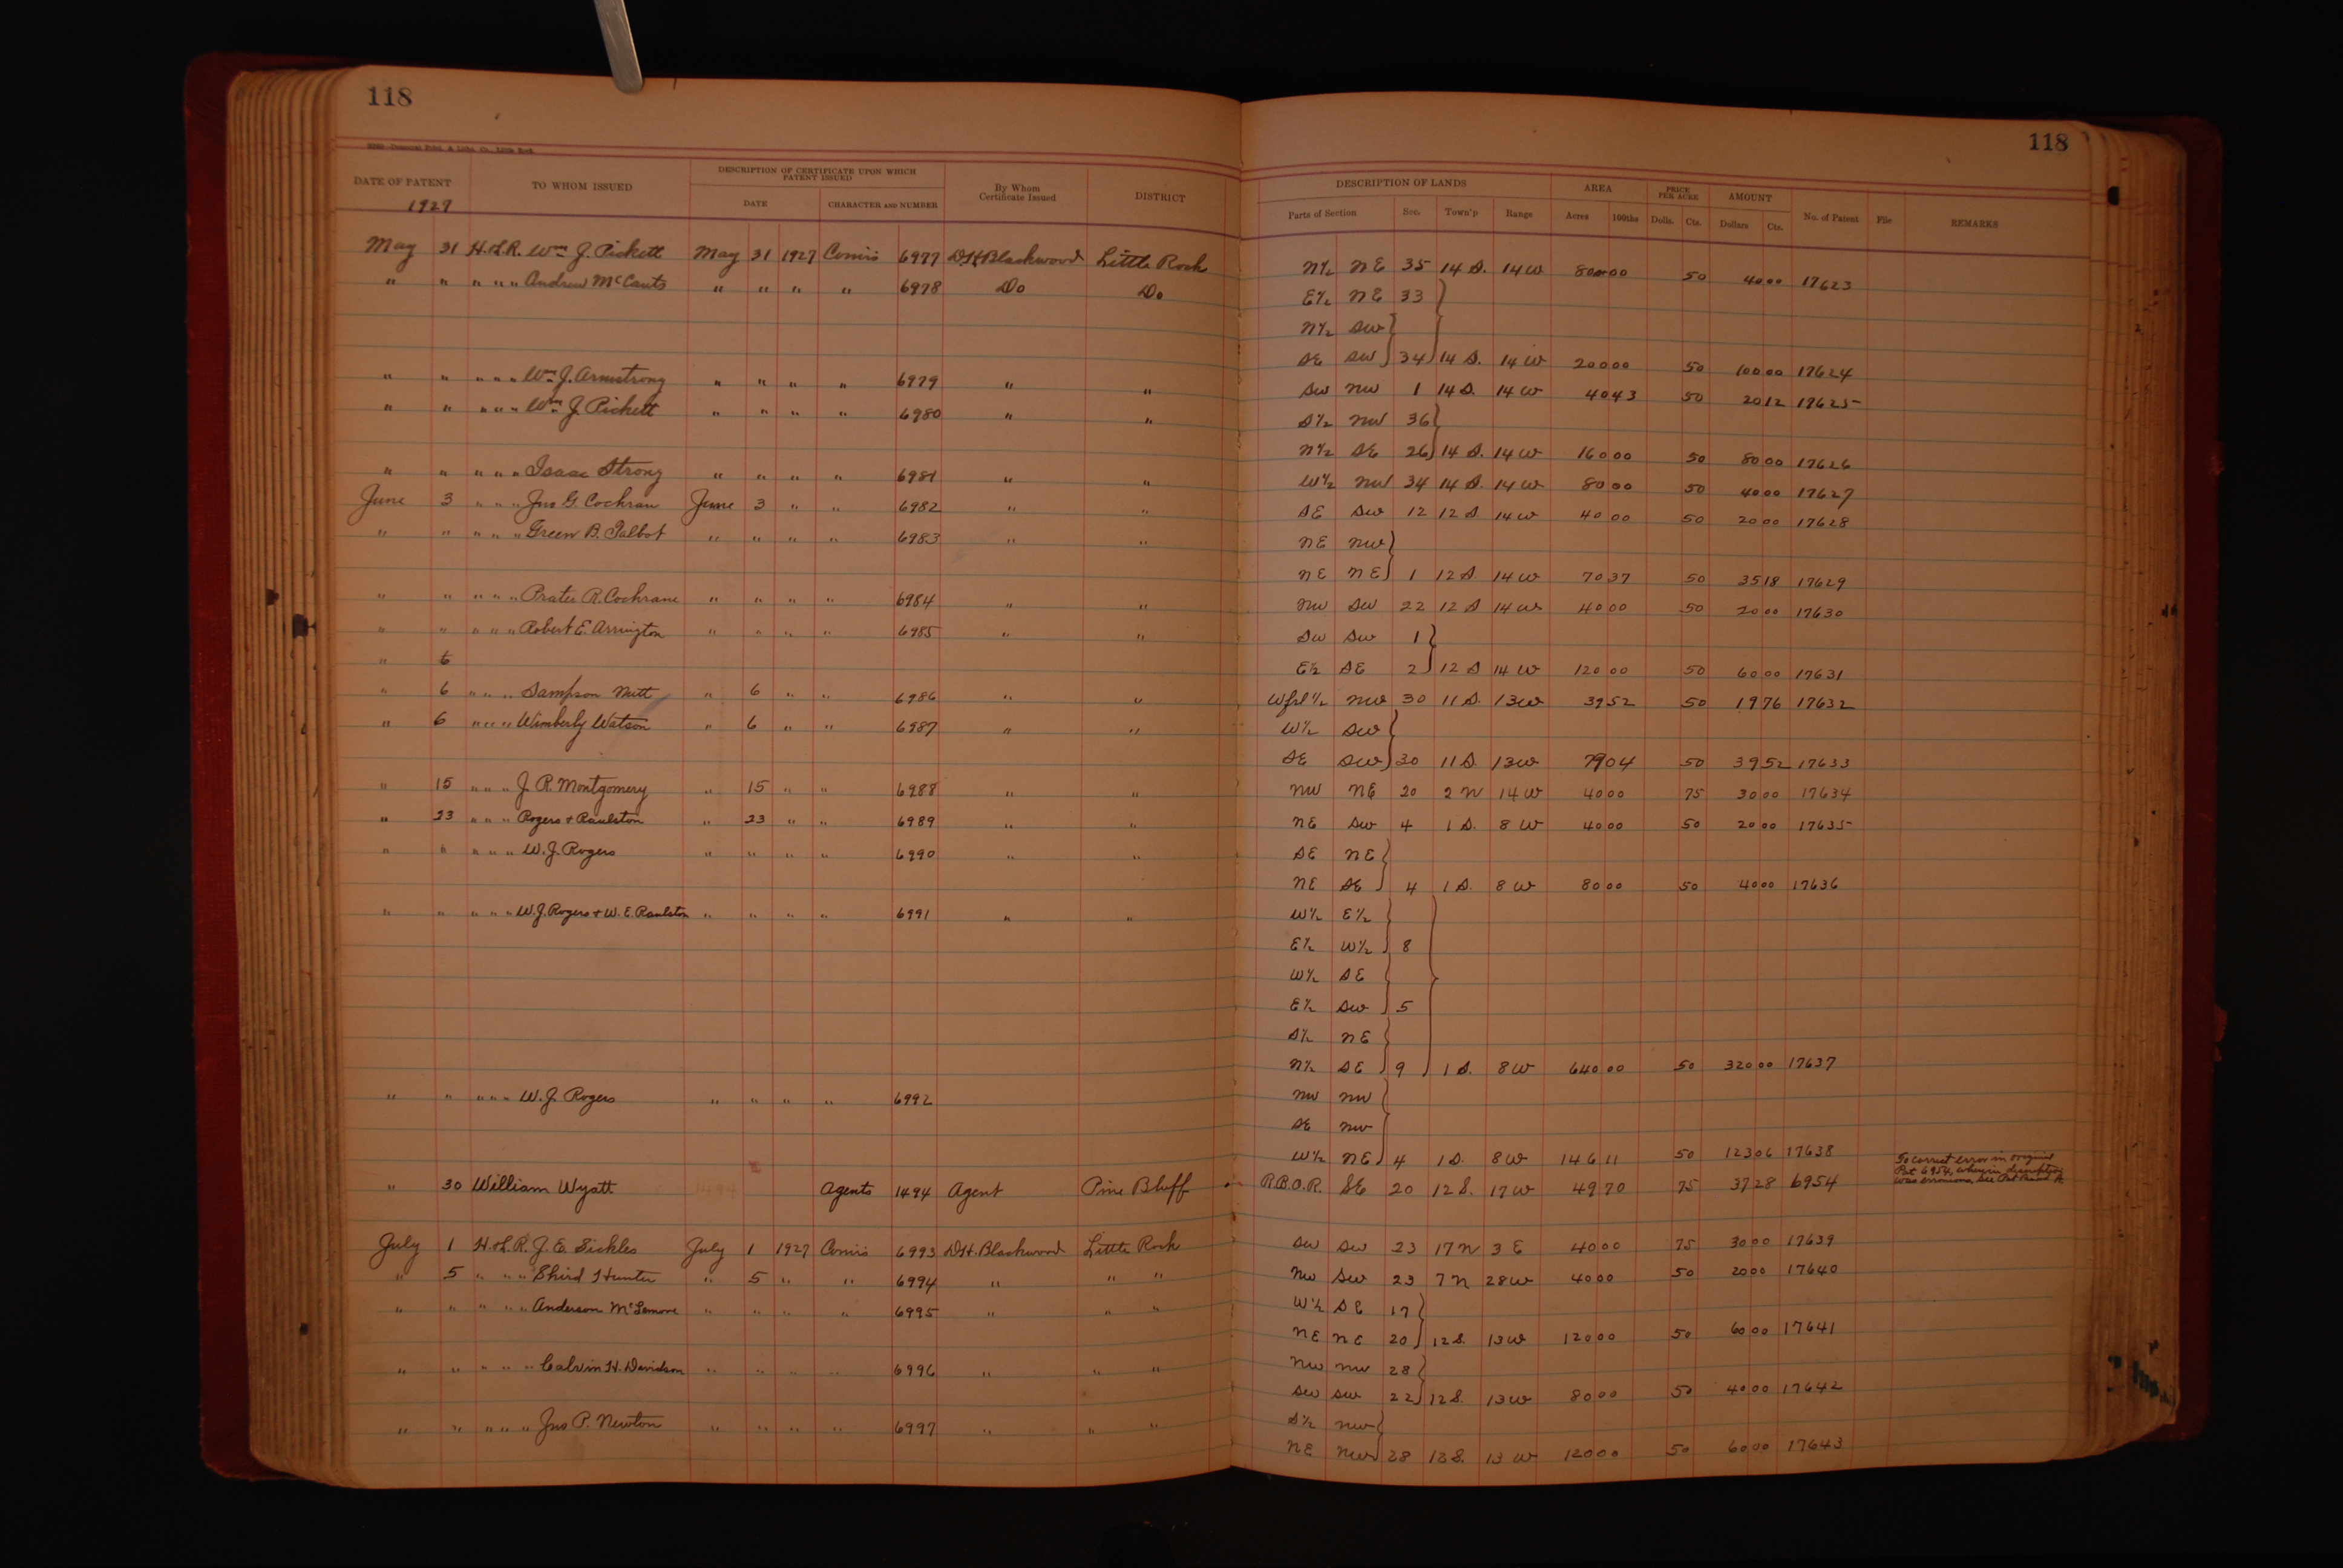 118
118
DATE OF PATENT TO WHOM ISSUED DESCRIPTION OF CERTIFICATE UPON WHICH PATENT ISSUED By Whom Certificate Issued DISTRICT DESCRIPTION OF LANDS AREA PRICE PER ACRE AMOUNT No. of Patent File REMARKS
1927 DATE CHARACTER AND NUMBER Parts of Section Sec. Town'p Range Acres 100ths Dolls. Cts. Dollars Cts.
May 31 H.L.R. Wm J. Pickett May 31 1927 Comrs 6977 D.H. Blackwood Little Rock N½ NE 35 14 S. 14 W 80 00 50 40 00 17623
" " " " " Andrew McCants " " " " 6978 Do Do E½ NE 33
N½ SW
SE SW 34 14 S. 14 W 200 00 50 100 00 17624
" " " " " Wm J. Armstrong " " " " 6979 " " SW NW 1 14 S. 14 W 40 43 50 20 12 17625
" " " " " Wm J. Pickett " " " " 6980 " " S½ NW 36
N½ SE 26 14 S. 14 W 160 00 50 80 00 17626
" " " " " Isaac Strong " " " " 6981 " " W½ NW 34 14 S. 14 W 80 00 50 40 00 17627
June 3 " " " Jno G. Cochran June 3 " " 6982 " " SE SW 12 12 S. 14 W 40 00 50 20 00 17628
" " " " " Green B. Talbot " " " " 6983 " " NE NW
NE NE 1 12 S. 14 W 70 37 50 35 18 17629
" " " " " Prater R. Cochrane " " " " 6984 " " NW SW 22 12 S 14 W 40 00 50 20 00 17630
" " " " " Robert E. Arrington " " " " 6985 " " SW SW 1
" 6 E½ SE 2 12 S 14 W 120 00 50 60 00 17631
" 6 " " " Sampson Nutt " 6 " " 6986 " " W frl ½ NW 30 11 S. 13 W 39 52 50 19 76 17632
" 6 " " " Wimberly Watson " 6 " " 6987 " " W½ SW
SE SW 30 11 S. 13 W 79 04 50 39 52 17633
" 15 " " " J. R. Montgomery " 15 " " 6988 " " NW NE 20 2 N 14 W 40 00 75 30 00 17634
" 23 " " " Rogers + Raulston " 23 " " 6989 " " NE SW 4 1 S. 8 W 40 00 50 20 00 17635
" " " " " W. J. Rogers " " " " 6990 " " SE NE
NE SE 4 1 S. 8 W 80 00 50 40 00 17636
" " " " " W. J. Rogers + W. E. Raulston " " " " 6991 " " W½ E½
E½ W½ 8
W½ SE
E½ SW 5
S½ NE
N½ SE 9 1 S. 8 W 640 00 50 320 00 17637
" " " " " W. J. Rogers " " " " 6992 NW NW
SE NW
W½ NE 4 1 S. 8 W 146 11 50 123 06 17638
" 30 William Wyatt Agents 1494 Agent Pine Bluff P.B.O.R. SE 20 12 S. 17 W 49 70 75 37 28 6954 To correct error in original
Pat 6954, wherein description
was erroneous, See Pat
July 1 H.L.R. J. E. Sickles July 1 1927 Comrs 6993 D.H. Blackwood Little Rock SW SW 23 17 N 3 E 40 00 75 30 00 17639
" 5 " " " Hunter " 5 " " 6994 " " " NW SW 23 7 N 28 W 40 00 50 20 00 17640
" " " " " Anderson McLemore " " " " 6995 " " " W½ SE 17
NE NE 20 12 S. 13 W 120 00 50 60 00 17641
" " " " " Calvin H. Davidson " " " " 6996 " " " NW NW 28
SW SW 22 12 S. 13 W 80 00 50 40 00 17642
" " " " " Jno P. Newton " " " " 6997 " " " S½ NW
NE NW 28 12 S. 13 W 120 00 50 60 00 17643